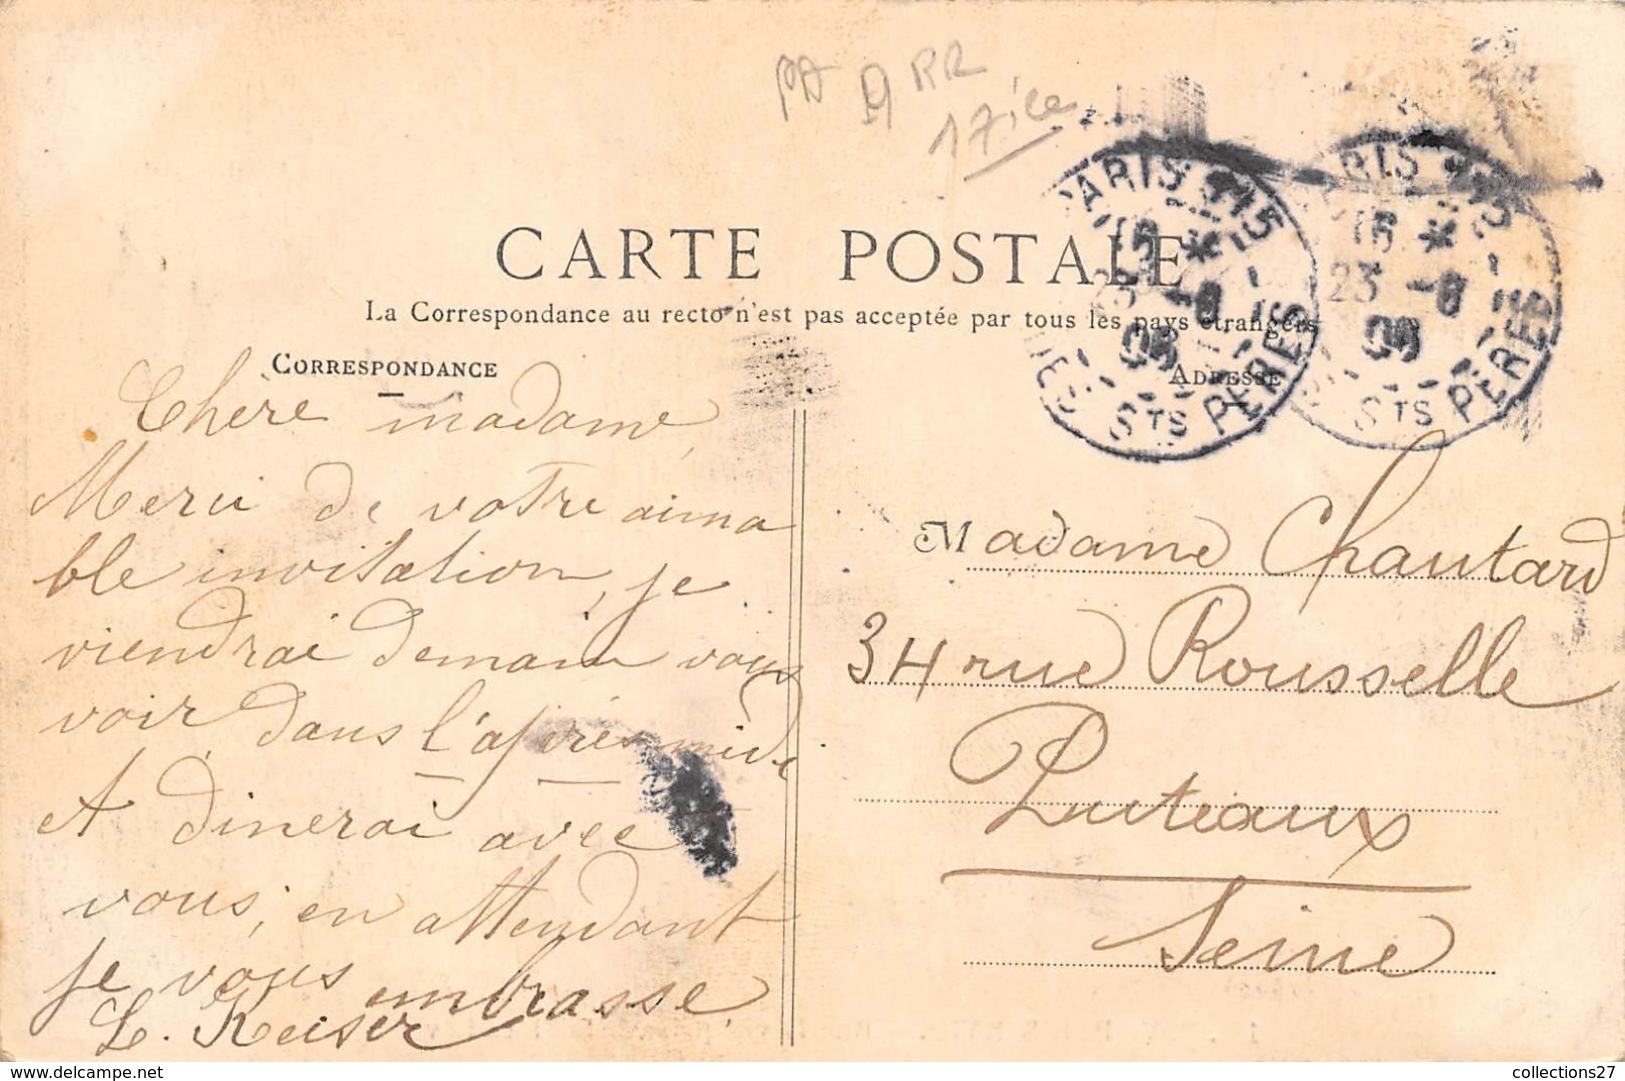 ARR
17ice
PARIS 115
15 *
23 -8
06
STS PERES
PARIS 115
15 *
23 -8
06
STS PERES
CARTE POSTALE
La Correspondance au recto n'est pas acceptée par tous les pays étrangers
CORRESPONDANCE
ADRESSE
Chère madame,
Merci de votre aima
ble invitation, je
viendrai demain vous
voir dans l'après midi
et dinerai avec
vous, en attendant
je vous embrasse.
L. Keiser
Madame Chautard
34 rue Rousselle
Puteaux
Seine
https://www.delcampe.net
collections27